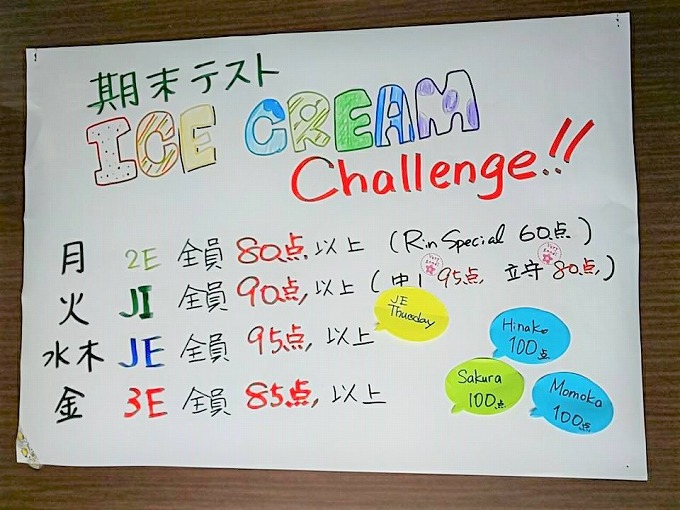 期末テスト
ICE CREAM
Challenge!!
月 2E 全員 80点以上 (Rin Special 60点)
火 JI 全員 90点以上 (中1 95点 立守 80点)
水木 JE 全員 95点以上
金 3E 全員 85点以上
JE
Thuesday
Hinako
100点
Sakura
100点
Momoka
100点